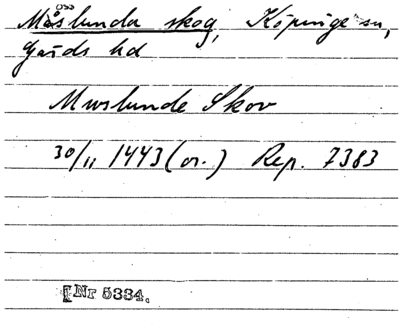 oss
Måslunda skog, Köpinge sn,
Gärds hd
Muslunde Skov
30/11 1443 (or.) Rep. 7383
[Nr 5334.